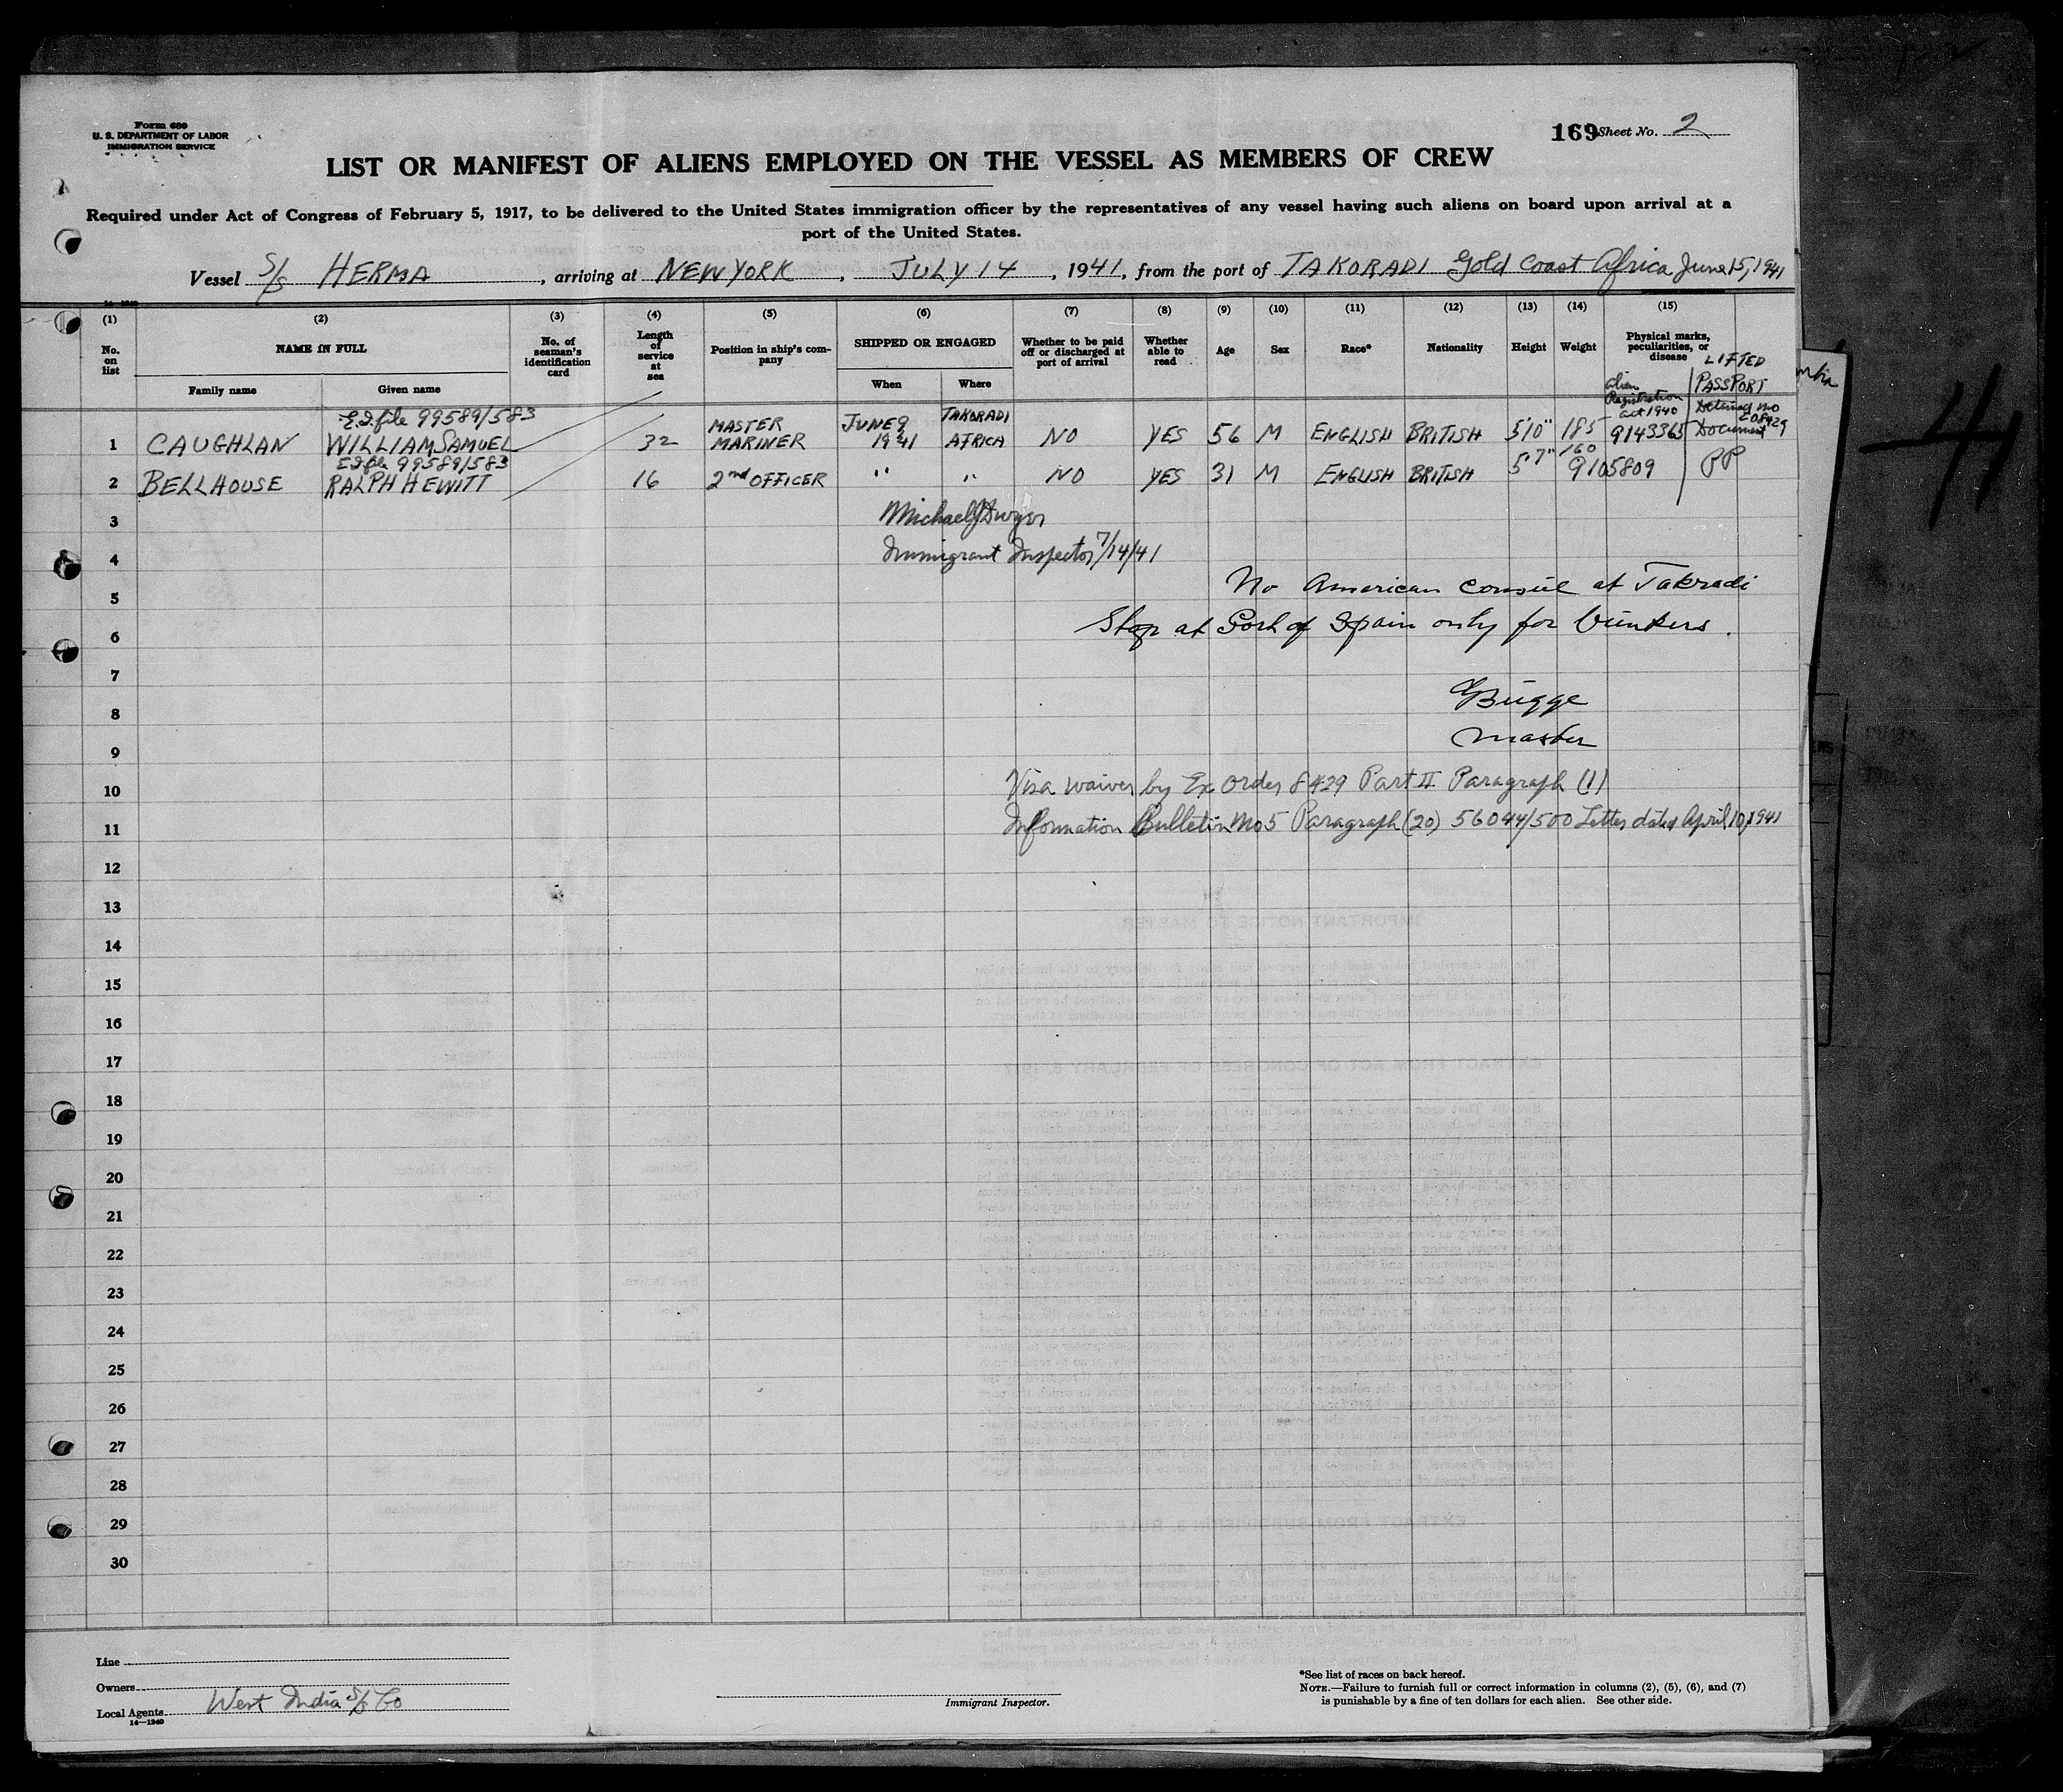 Form 680
U. S. DEPARTMENT OF LABOR
IMMIGRATION SERVICE
169 Sheet No. 2
LIST OR MANIFEST OF ALIENS EMPLOYED ON THE VESSEL AS MEMBERS OF CREW
Required under Act of Congress of February 5, 1917, to be delivered to the United States immigration officer by the representatives of any vessel having such aliens on board upon arrival at a
port of the United States.
Vessel S/S HERMA, arriving at NEW YORK, JULY 14, 1941, from the port of TAKORADI Gold Coast Africa June 15, 1941
(1) (2) (3) (4) (5) (6) (7) (8) (9) (10) (11) (12) (13) (14) (15)
No. on list
NAME IN FULL
Family name Given name
No. of seaman's identification card
Length of service at sea
Position in ship's company
SHIPPED OR ENGAGED
When Where
Whether to be paid off or discharged at port of arrival
Whether able to read
Age
Sex
Race*
Nationality
Height
Weight
Physical marks, peculiarities, or disease
LIFTED
PASSPORT
Alien Registration act 1940
E.I. file 99589/583
1 CAUGHLAN WILLIAM SAMUEL 32 MASTER MARINER JUNE 9 1941 TAKORADI AFRICA NO YES 56 M ENGLISH BRITISH 5'10" 185 9143365 Document
E.I. file 99589/583
2 BELLHOUSE RALPH HEWITT 16 2nd OFFICER " " NO YES 31 M ENGLISH BRITISH 5'7" 160 9105809 PP
3 Michael J Dwyer
4 Immigrant Inspector 7/14/41
5 No American Consul at Takradi
6 Stop at Port of Spain only for bunkers.
7
8 Bugge
9 Master
10 Visa waiver by Ex Order 8429 Part II Paragraph (1)
11 Information Bulletin No 5 Paragraph (20) 56044/500 Letter dated April 10, 1941
12
13
14
15
16
17
18
19
20
21
22
23
24
25
26
27
28
29
30
Line
Owners
Local Agents West India S/S Co
14—1940
Immigrant Inspector.
*See list of races on back hereof.
NOTE.—Failure to furnish full or correct information in columns (2), (5), (6), and (7)
is punishable by a fine of ten dollars for each alien. See other side.